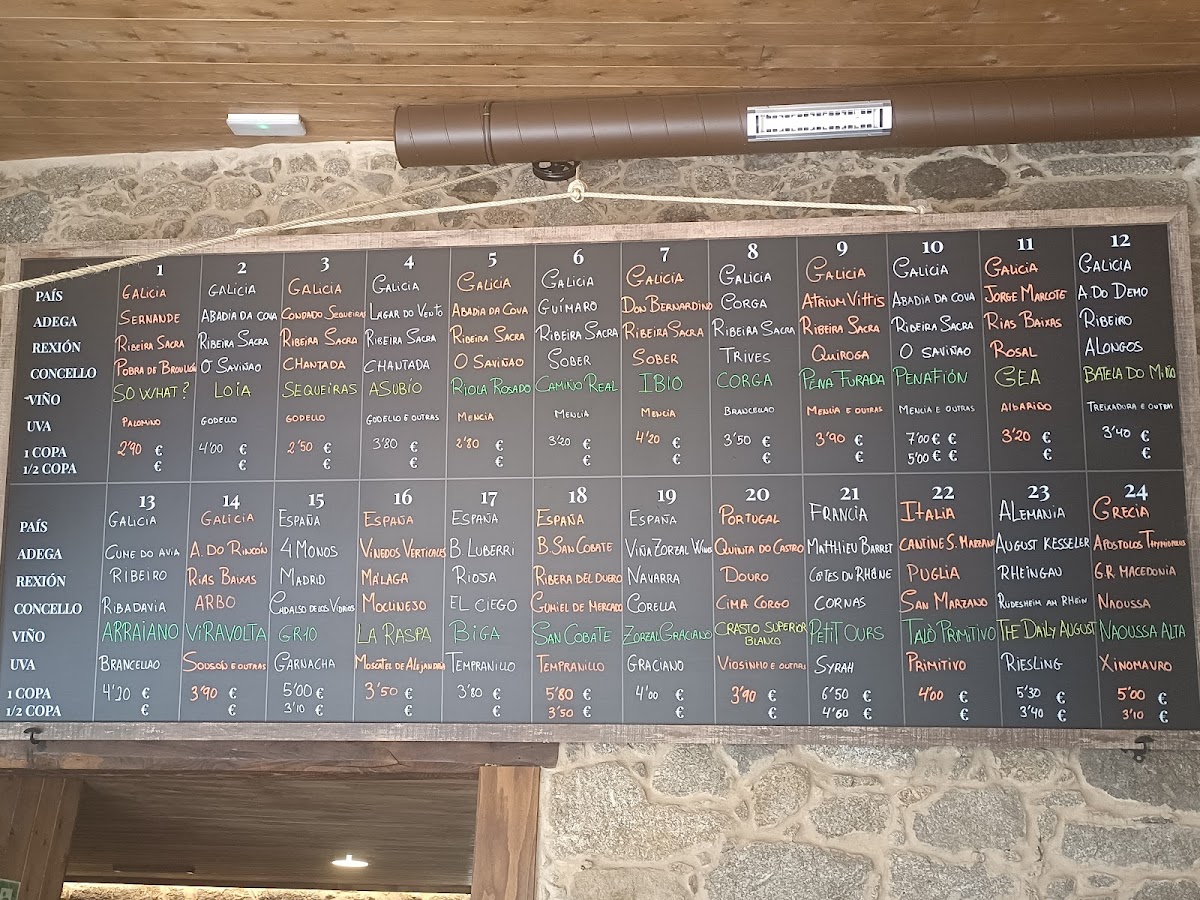 1 2 3 4 5 6 7 8 9 10 11 12
PAÍS GALICIA GALICIA GALICIA GALICIA GALICIA GALICIA GALICIA GALICIA GALICIA GALICIA GALICIA GALICIA
ADEGA SERNANDE ABADIA DA COVA CONDADO SEQUEIRAS LAGAR DO VENTO ABADIA DA COVA GUÍMARO DON BERNARDINO CORGA ATRIUM VITTIS ABADIA DA COVA JORGE MARCOTE A. DO DEMO
REXIÓN RIBEIRA SACRA RIBEIRA SACRA RIBEIRA SACRA RIBEIRA SACRA RIBEIRA SACRA RIBEIRA SACRA RIBEIRA SACRA RIBEIRA SACRA RIBEIRA SACRA RIBEIRA SACRA RIAS BAIXAS RIBEIRO
CONCELLO POBRA DE BROLLÓN O SAVIÑAO CHANTADA CHANTADA O SAVIÑAO SOBER SOBER TRIVES QUIROGA O SAVIÑAO ROSAL ALONGOS
VIÑO SO WHAT? LOIA SEQUEIRAS ASUBÍO RIOLA ROSADO CAMIÑO REAL IBIO CORGA PENA FURADA PENAFIÓN GEA BATELA DO MIÑO
UVA PALOMINO GODELLO GODELLO GODELLO E OUTRAS MENCIA MENCIA MENCIA BRANCELLAO MENCIA E OUTRAS MENCIA E OUTRAS ALBARIÑO TREIXADURA E OUTRAS
1 COPA 2'90 € 4'00 € 2'50 € 3'80 € 2'80 € 3'20 € 4'20 € 3'50 € 3'90 € 7'00 € € 3'20 € 3'40 €
1/2 COPA € € € € € € € € € 5'00 € € € €
13 14 15 16 17 18 19 20 21 22 23 24
PAÍS GALICIA GALICIA ESPAÑA ESPAÑA ESPAÑA ESPAÑA ESPAÑA PORTUGAL FRANCIA ITALIA ALEMANIA GRECIA
ADEGA CUME DO AVIA A. DO RINCÓN 4 MONOS VIÑEDOS VERTICALES B. LUBERRI B. SAN COBATE VIÑA ZORZAL WINES QUINTA DO CASTRO MATTHIEU BARRET CANTINE S. MARZANO AUGUST KESSELER APOSTOLOS
REXIÓN RIBEIRO RIAS BAIXAS MADRID MÁLAGA RIOJA RIBERA DEL DUERO NAVARRA DOURO CÔTES DU RHÔNE PUGLIA RHEINGAU G.R. MACEDONIA
CONCELLO RIBADAVIA ARBO CADALSO DE LOS VIDRIOS MOCLINEJO EL CIEGO GUMIEL DE MERCADO CORELLA CIMA CORGO CORNAS SAN MARZANO RUDESHEIM AM RHEIN NAOUSSA
VIÑO ARRAIANO VIRAVOLTA GR10 LA RASPA BIGA SAN COBATE ZORZAL GRACIANO CRASTO SUPERIOR BLANCO PETIT OURS TALÒ PRIMITIVO THE DAILY AUGUST NAOUSSA ALTA
UVA BRANCELLAO SOUSÓN E OUTRAS GARNACHA MOSCATEL DE ALEJANDRIA TEMPRANILLO TEMPRANILLO GRACIANO VIOSINHO E OUTRAS SYRAH PRIMITIVO RIESLING XINOMAVRO
1 COPA 4'20 € 3'90 € 5'00 € 3'50 € 3'80 € 5'80 € 4'00 € 3'90 € 6'50 € 4'00 € 5'30 € 5'00 €
1/2 COPA € € 3'10 € € € 3'50 € € € 4'60 € € 3'40 € 3'10 €